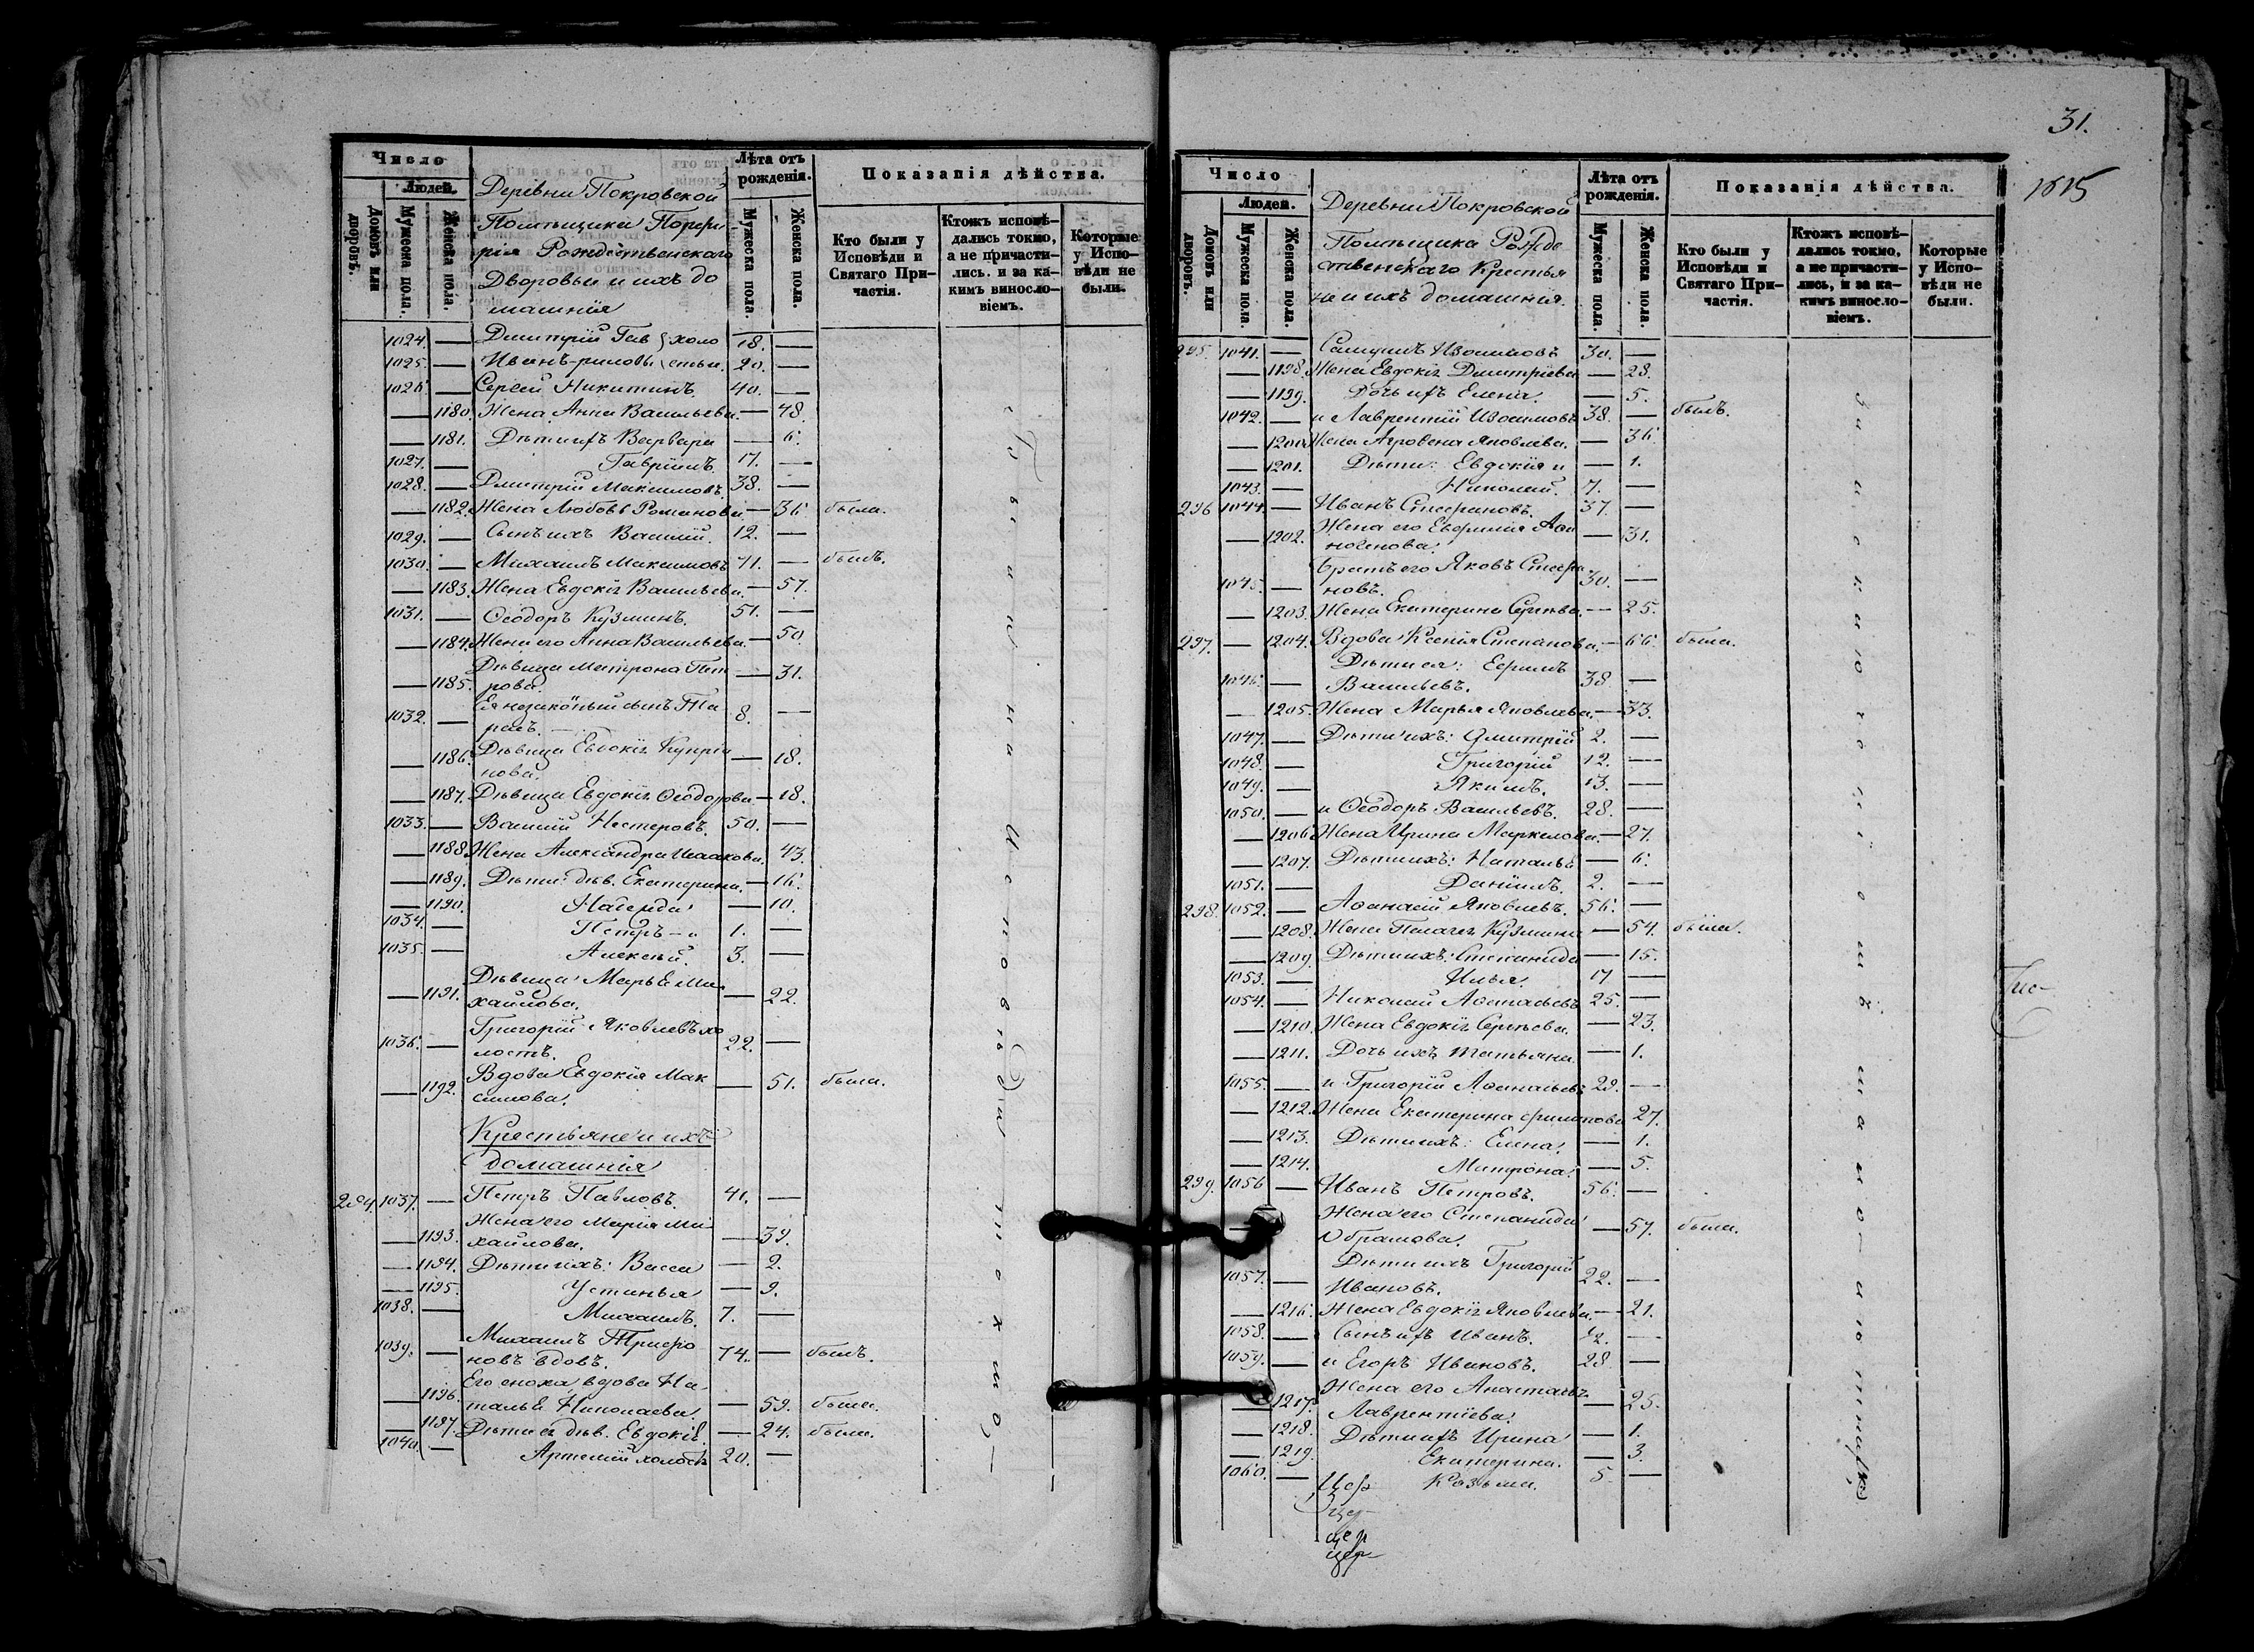 Число
Людей.
Домовъ или дворовъ.
Мужеска пола.
Женска пола.
Деревни Покровской
Помѣщика Порфи-
рія Рождественскаго
Дворовыя и ихъ до
машнія
Лѣта отъ рожденія.
Мужеска пола.
Женска пола.
Показанія дѣйства.
Кто были у Исповѣди и Святаго При-частія.
Ктожъ исповѣ-дались токмо, а не причасти-лись. и за ка-кимъ виносло-віемъ.
Которые у Испо-вѣди не были.
1024. — Дмитрій Гав } холо 18. —
1025. — Иванъ -риловы } стыи. 20. —
1026. — Сергей Никитинъ. 40. —
— 1180. Жена Анна Васильева. — 48.
— 1181. Дѣти ихъ Варвара — 6.
1027. — Гавріилъ. 17. —
1028. — Дмитрій Максимовъ. 38. —
— 1182. Жена Любовь Романова — 36. была.
1029. — Сынъ ихъ Василій. 12. —
1030. — Михаилъ Максимовъ 71. — былъ.
— 1183. Жена Евдокія Васильева. — 57.
1031. — Ѳеодоръ Кузминъ. 51. —
— 1184. Жена его Анна Васильева. — 50
— 1185. Дѣвица Матрона Пет
рова. — 31.
1032. — Ея незаконный сынъ Та
расъ. — 8. —
— 1186. Дѣвица Евдокія Купрія
нова. — 18.
— 1187. Дѣвица Евдокія Ѳеодорова — 18.
1033. — Василій Нестеровъ. 50. —
— 1188. Жена Александра Исаакова. 43.
— 1189. Дѣти: дѣв. Екатерина. — 16.
— 1190. Надежда — 10.
1034. — Петръ — и 1. —
1035. — Алексѣй. 3. —
— 1191. Дѣвица Марья Ми
хайлова. — 22.
1036. — Григорій Яковлевъ хо
лостъ. 22. —
— 1192. Вдова Евдокія Мак
симова. — 51. была.
Крестьяне и ихъ
домашнія
294. 1037. — Петръ Павловъ. 41. —
— 1193. Жена его Марія Ми
хайлова. — 39.
— 1194. Дѣти ихъ: Васса — 2.
— 1195. Устинья — 9.
1038. — Михаилъ. 7. —
1039. — Михаилъ Трифо
новъ вдовъ. 74. — былъ.
— 1196. Его сноха, вдова На-
талья Николаева. — 59. была.
— 1197. Дѣти ея дѣв. Евдокія. — 24. была.
1040. — Артемій холостъ 20. —
31.
1815
Число
Людей.
Домовъ или дворовъ.
Мужеска пола.
Женска пола.
Деревни Покровской
Помѣщика Рожде
ственскаго Крестья
не и ихъ домашнія.
Лѣта отъ рожденія.
Мужеска пола.
Женска пола.
Показанія дѣйства.
Кто были у Исповѣди и Святаго При-частія.
Ктожъ исповѣ-дались токмо, а не причасти-лись, и за ка-кимъ виносло-віемъ.
Которые у Испо-вѣди не были.
295. 1041. — Самуилъ Изосимовъ 30. —
— 1198. Жена Евдокія Дмитріева — 28.
— 1199. Дочь ихъ Елена. — 5.
1042. — и Лаврентій Изосимовъ 38. — былъ.
— 1200. Жена Агровена Яковлева. — 36.
— 1201. Дѣти: Евдокія и — 1.
1043. — Николай. 7. —
296 1044. — Иванъ Стефановъ. 37. —
— 1202. Жена его Евфимія Аѳи
ногенова. — 31.
1045. — Братъ его Яковъ Стефа
новъ. 30. —
— 1203. Жена Екатерина Сергѣева. — 25.
297. — 1204. Вдова Ксенія Степанова. — 66. была.
1046. — Дѣти ея: Ефимъ
Васильевъ. 38. —
— 1205. Жена Марья Яковлева. — 33.
1047. — Дѣти ихъ: Дмитрій 2. —
1048. — Григорій 12. —
1049. — Якимъ. 13. —
1050. — и Ѳеодоръ Васильевъ. 28. —
— 1206. Жена Ирина Маркелова. — 27.
— 1207. Дѣти ихъ: Наталья — 6.
1051. — Даніилъ. 2. —
298. 1052. — Аѳанасій Яковлевъ. 56. —
— 1208. Жена Пелагея Кузмина — 54. была.
— 1209. Дѣти ихъ: Степанида — 15.
1053. — Илья. 17 —
1054. — Николай Аѳанасьевъ 25. —
— 1210. Жена Евдокія Сергѣева. — 23.
— 1211. Дочь ихъ Татьяна — 1.
1055. — и Григорій Аѳанасьевъ 29. —
— 1212. Жена Екатерина Филипова 27.
— 1213. Дѣти ихъ: Елена. — 1.
— 1214. Матрона. — 5.
299. 1056 — Иванъ Петровъ. 56. —
— Жена его Степанида
Абрамова. — 57. была.
1057. — Дѣти ихъ Григорій
Ивановъ. 22. —
— 1216. Жена Евдокія Яковлева. — 21.
1058. — Сынъ ихъ Иванъ. 2. —
1059. — и Егоръ Ивановъ. 28 —
— 1217. Жена его Анастасья
Лаврентіева. — 25.
— 1218. Дѣти ихъ Ирина — 1.
— 1219. Екатерина. — 3.
1060. — Козьма. 5. —